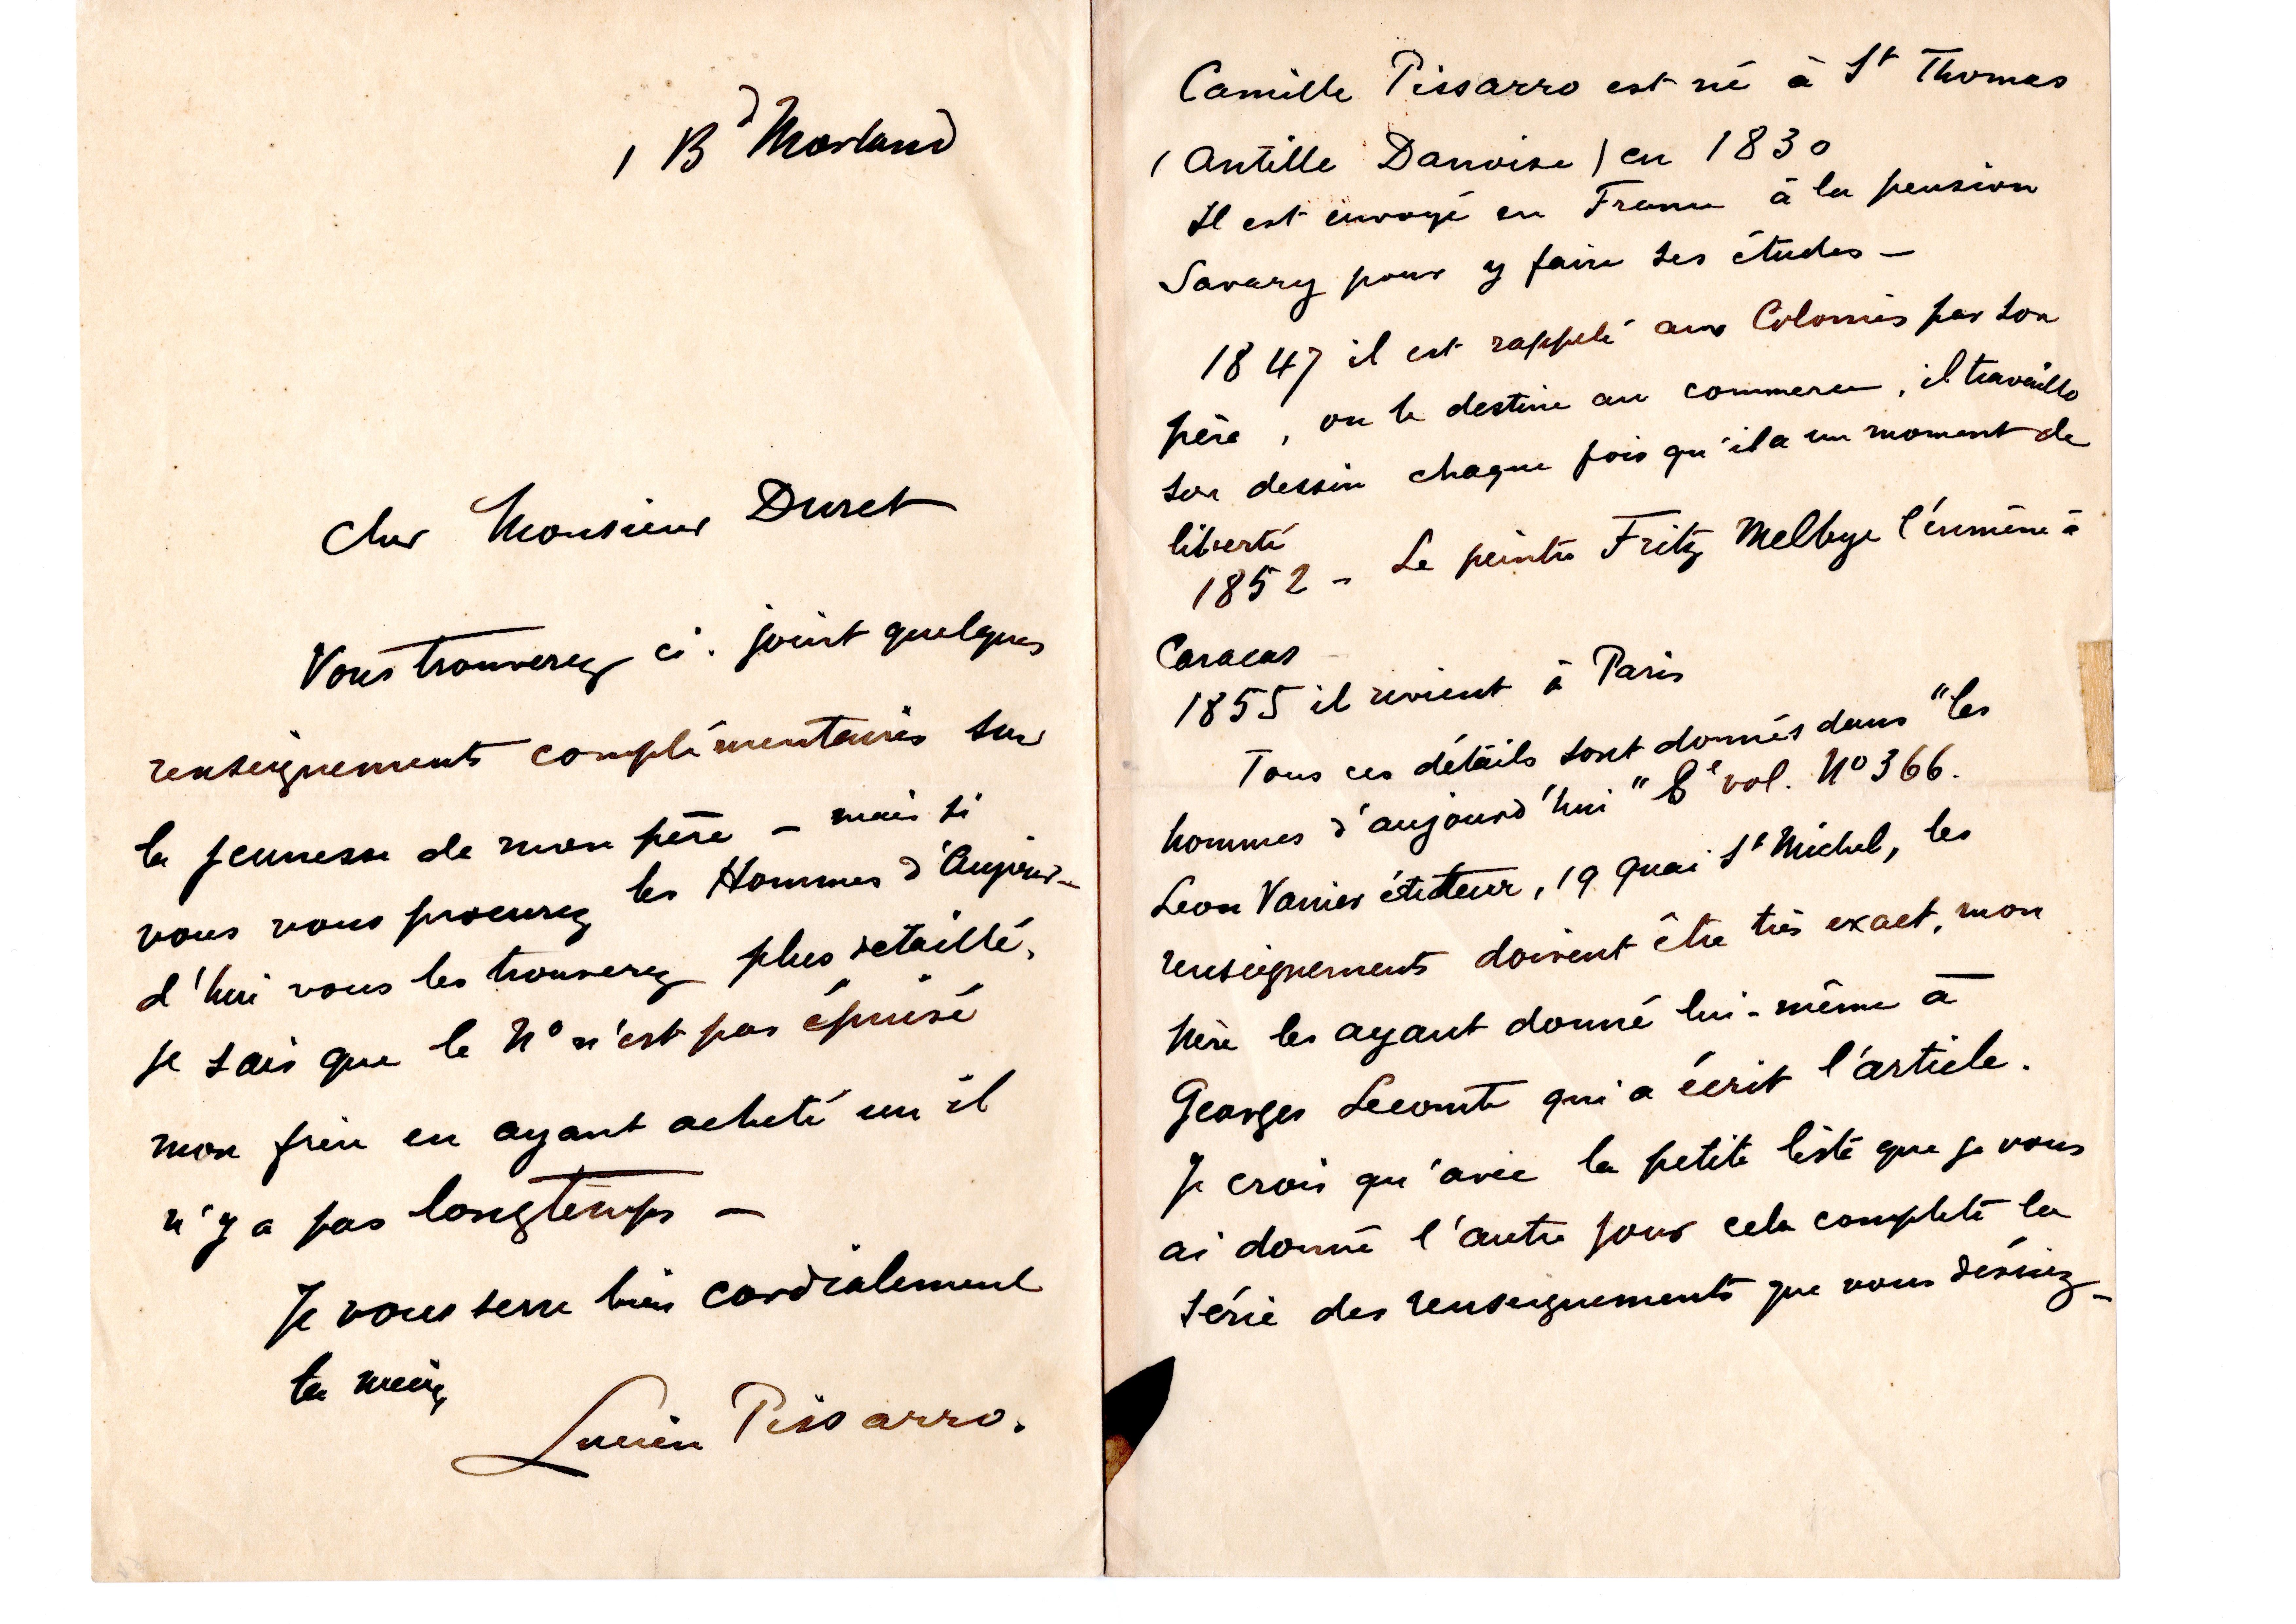 1 Bd Morland
Cher Monsieur Duret
Vous trouverez ci-joint quelques
renseignements complémentaires sur
la jeunesse de mon père – mais si
vous vous procurez les Hommes d'Aujour-
d'hui vous les trouverez plus detaillé,
je sais que le No n'est pas épuisé
mon frère en ayant acheté un il
n'y a pas longtemps –
Je vous serre bien cordialement
la main
Lucien Pissarro.
Camille Pissarro est né à St Thomas
(Antille Danoise) en 1830
Il est envoyé en France à la pension
Savary pour y faire ses études –
1847 il est rappelé aux Colonies par son
père, on le destine au commerce, il travaille
son dessin chaque fois qu'il a un moment de
liberté
1852 – Le peintre Fritz Melbye l'emmène à
Caracas
1855 il revient à Paris
Tous ces détails sont donnés dans "les
hommes d'aujourd'hui" 8e vol. No 366.
Leon Vanier éditeur, 19 Quai St Michel, les
renseignements doivent être très exact, mon
père les ayant donné lui-même à
Georges Lecomte qui a écrit l'article.
Je crois qu'avec la petite liste que je vous
ai donné l'autre jour cela complete la
série des renseignements que vous désiriez –